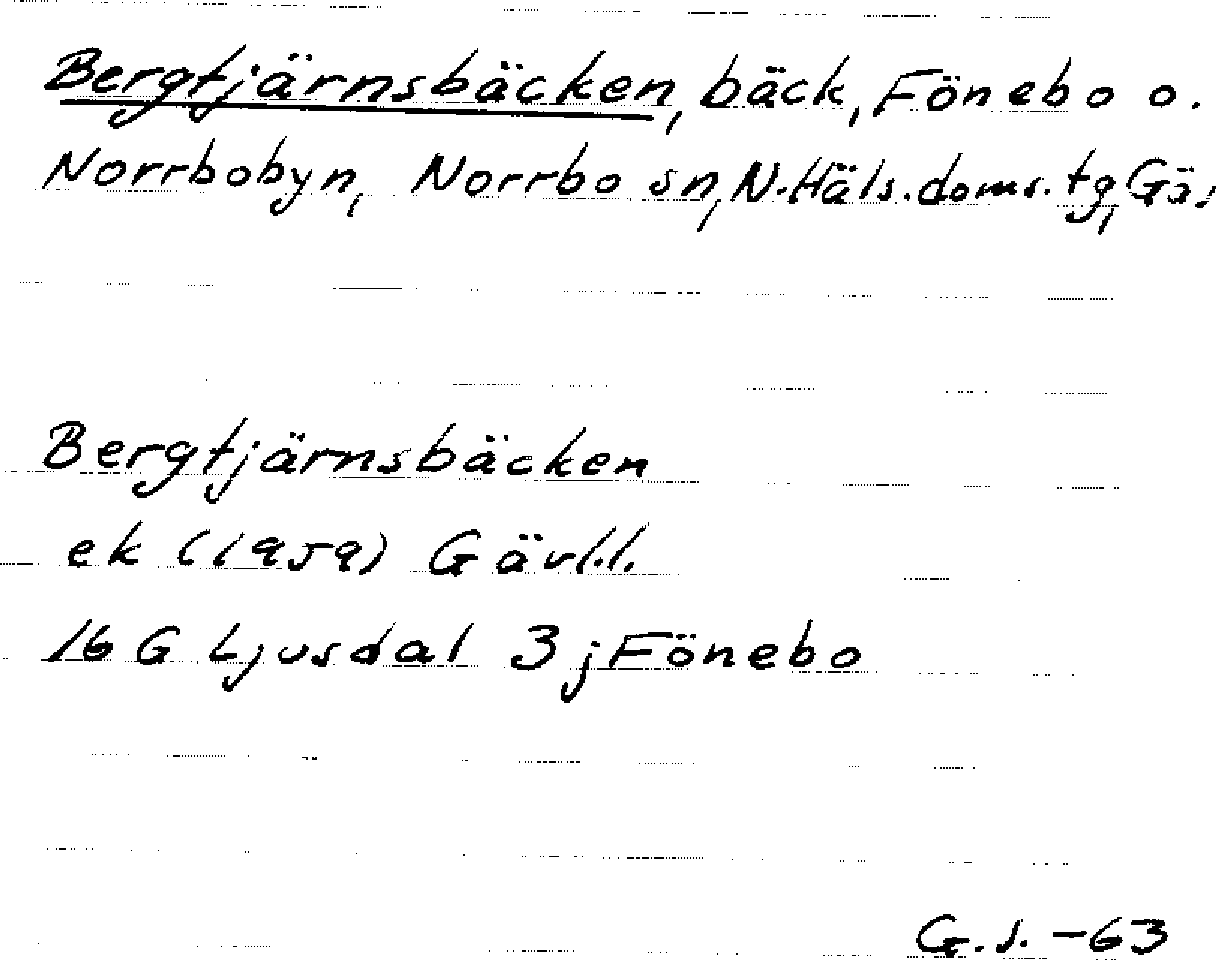 Bergtjärnsbäcken, bäck, Fönebo o.
Norrbobyn, Norrbo sn, N.Häls.doms.tg, Gä,
Bergtjärnsbäcken
ek (1959) Gävl.l.
16 G Ljusdal 3 j Fönebo
G.S. -63